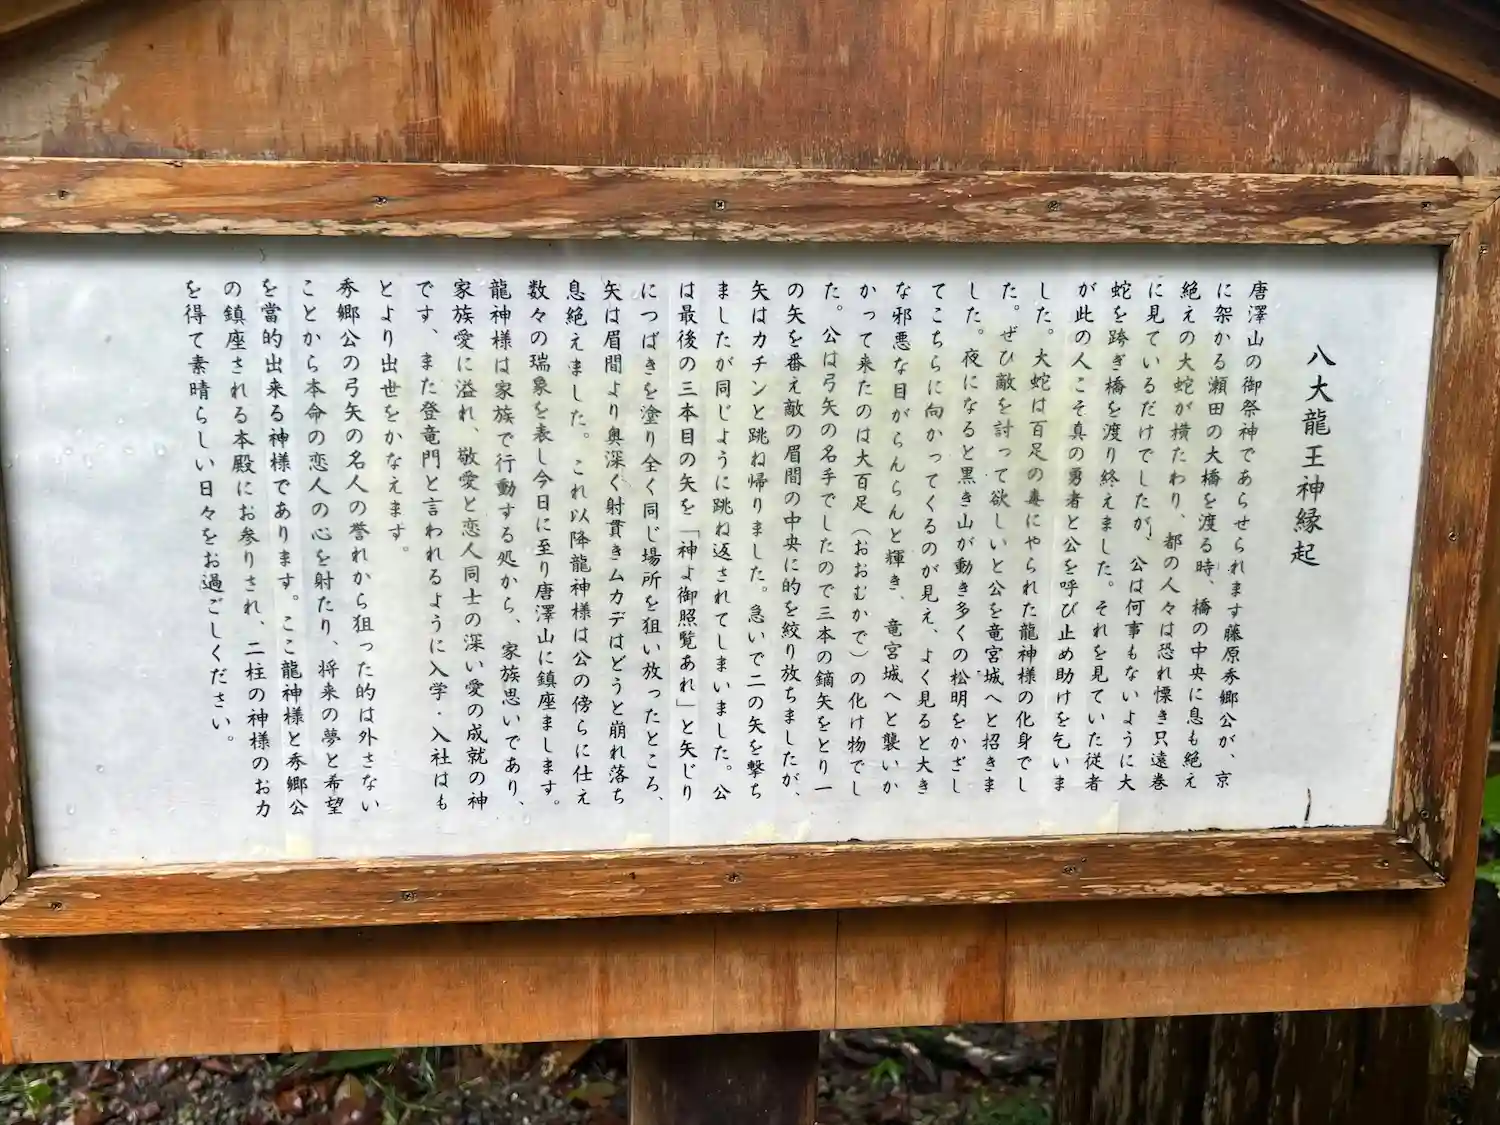 八大龍王神縁起
唐澤山の御祭神であらせられます藤原秀郷公が、京
に架かる瀬田の大橋を渡る時、橋の中央に息も絶え
絶えの大蛇が横たわり、都の人々は恐れ慄き只遠巻
に見ているだけでしたが、公は何事もないように大
蛇を跨ぎ橋を渡り終えました。それを見ていた従者
が此の人こそ真の勇者と公を呼び止め助けを乞いま
した。大蛇は百足の毒にやられた龍神様の化身でし
た。ぜひ敵を討って欲しいと公を竜宮城へと招きま
した。夜になると黒き山が動き多くの松明をかざし
てこちらに向かってくるのが見え、よく見ると大き
な邪悪な目がらんらんと輝き、竜宮城へと襲いか
かって来たのは大百足（おおむかで）の化け物でし
た。公は弓矢の名手でしたので三本の鏑矢をとり一
の矢を番え敵の眉間の中央に的を絞り放ちましたが、
矢はカチンと跳ね帰りました。急いで二の矢を撃ち
ましたが同じように跳ね返されてしまいました。公
は最後の三本目の矢を「神よ御照覧あれ」と矢じり
につばきを塗り全く同じ場所を狙い放ったところ、
矢は眉間より奥深く射貫きムカデはどうと崩れ落ち
息絶えました。これ以降龍神様は公の傍らに仕え
数々の瑞象を表し今日に至り唐澤山に鎮座まします。
龍神様は家族で行動する処から、家族思いであり、
家族愛に溢れ、敬愛と恋人同士の深い愛の成就の神
です、また登竜門と言われるように入学・入社はも
とより出世をかなえます。
秀郷公の弓矢の名人の誉れから狙った的は外さない
ことから本命の恋人の心を射たり、将来の夢と希望
を當的出来る神様であります。ここ龍神様と秀郷公
の鎮座される本殿にお参りされ、二柱の神様のお力
を得て素晴らしい日々をお過ごしください。